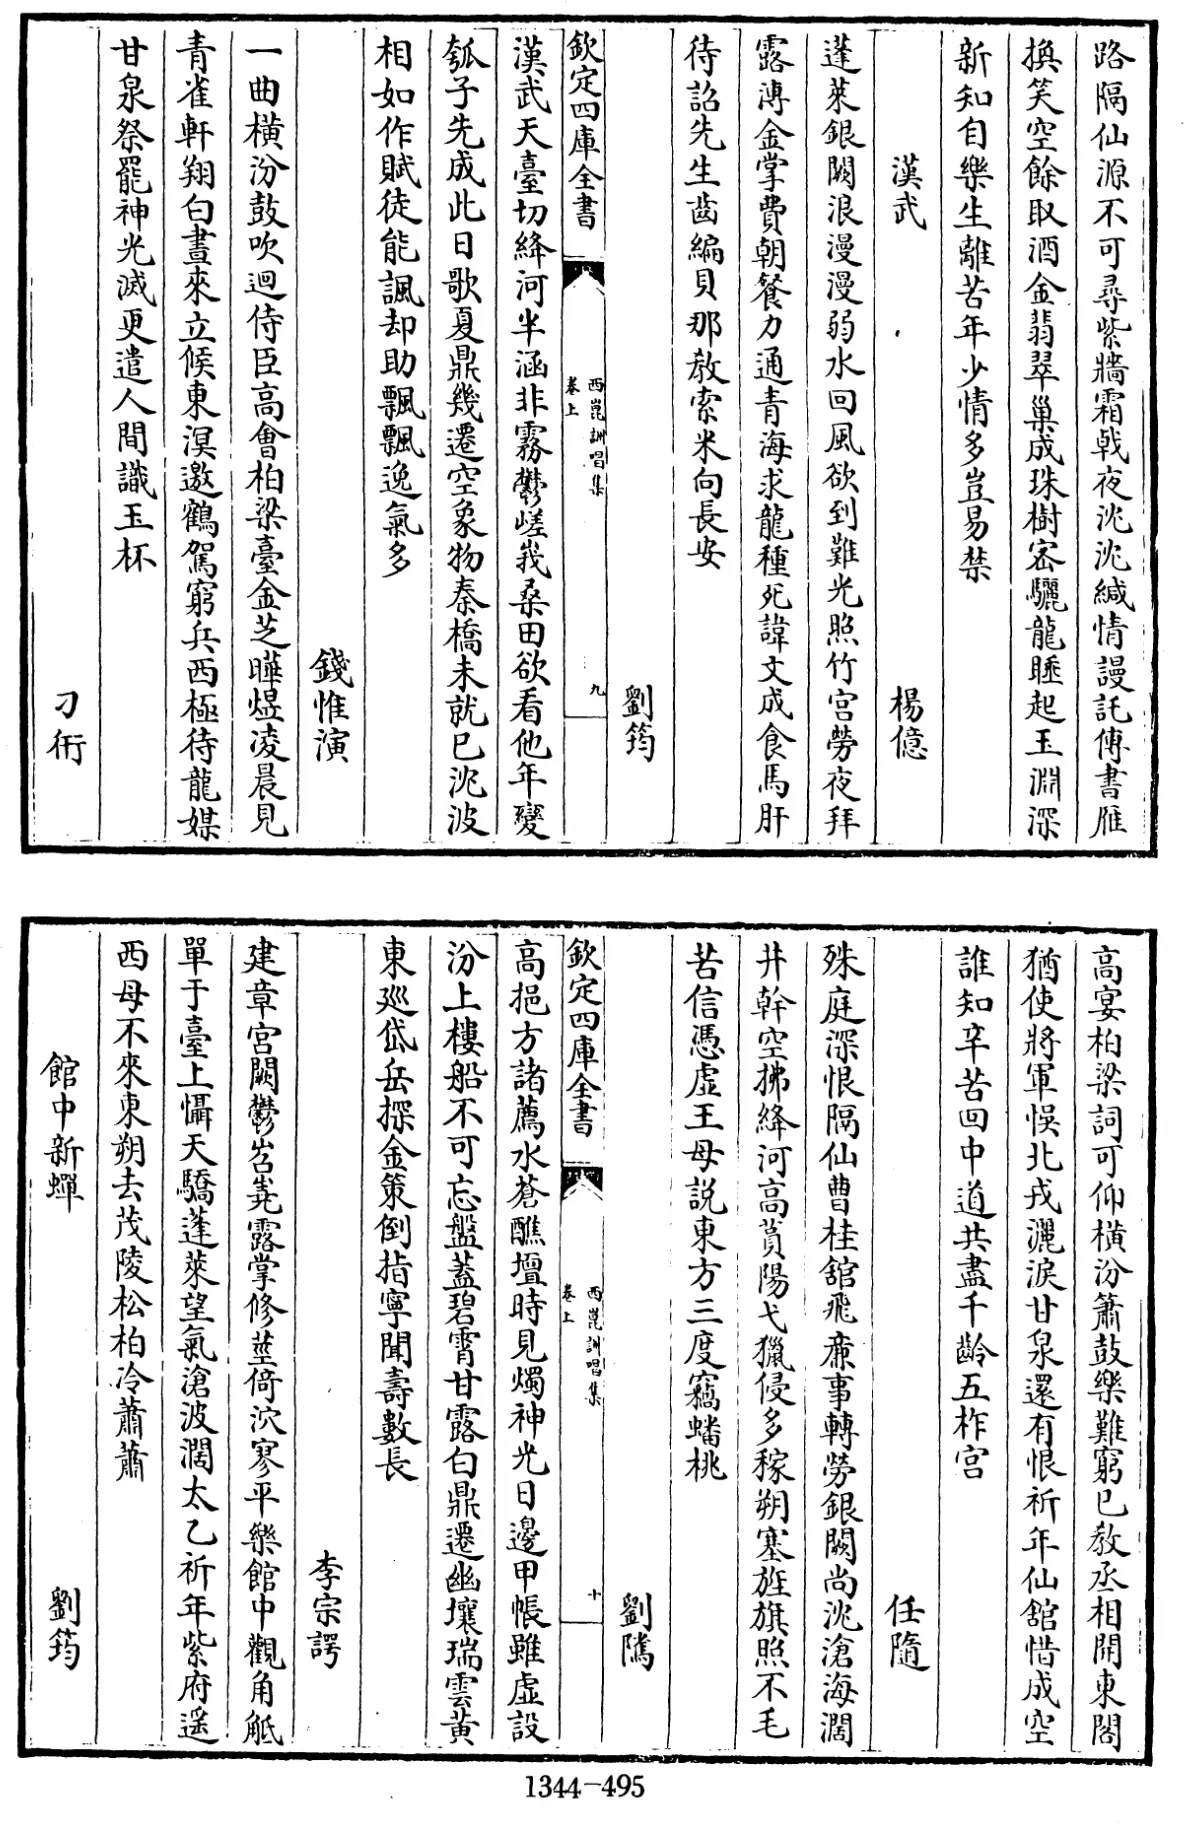 路隔仙源不可尋紫牆霜戟夜沈沈緘情謾託傳書雁
換笑空餘取酒金翡翠巢成珠樹密驪龍睡起玉淵深
新知自樂生離苦年少情多豈易禁
漢武 楊億
蓬萊銀闕浪漫漫弱水回風欲到難光照竹宮勞夜拜
露漙金掌費朝餐力通青海求龍種死諱文成食馬肝
待詔先生齒編貝那教索米向長安
劉筠
欽定四庫全書
西崑詶唱集
卷上
九
漢武天臺切絳河半涵非霧鬱嵯峩桑田欲看他年變
瓠子先成此日歌夏鼎幾遷空象物秦橋未就已沈波
相如作賦徒能諷却助飄飄逸氣多
錢惟演
一曲橫汾鼓吹迴侍臣高會柏梁臺金芝曄煜凌晨見
青雀軒翔白晝來立候東溟邀鶴駕窮兵西極待龍媒
甘泉祭罷神光滅更遣人間識玉杯
刁衎
高宴柏梁詞可仰橫汾簫鼓樂難窮已教丞相開東閣
猶使將軍悞北戎灑淚甘泉還有恨祈年仙舘惜成空
誰知辛苦回中道共盡千齡五柞宮
任隨
殊庭深恨隔仙曹桂舘飛亷事轉勞銀闕尚沈滄海濶
井幹空拂絳河高萯陽弋獵侵多稼朔塞旌旗照不毛
苦信憑虛王母說東方三度竊蟠桃
劉隲
欽定四庫全書
西崑詶唱集
卷上
十
高挹方諸薦水蒼醮壇時見燭神光日邊甲帳雖虛設
汾上樓船不可忘盤蓋碧霄甘露白鼎遷幽壤瑞雲黃
東巡岱岳探金策倒指寧聞壽數長
李宗諤
建章宮闕鬱岧嶤露掌修莖倚泬寥平樂館中觀角觝
單于臺上懾天驕蓬萊望氣滄波濶太乙祈年紫府遥
西母不來東朔去茂陵松柏冷蕭蕭
館中新蟬 劉筠
1344-495